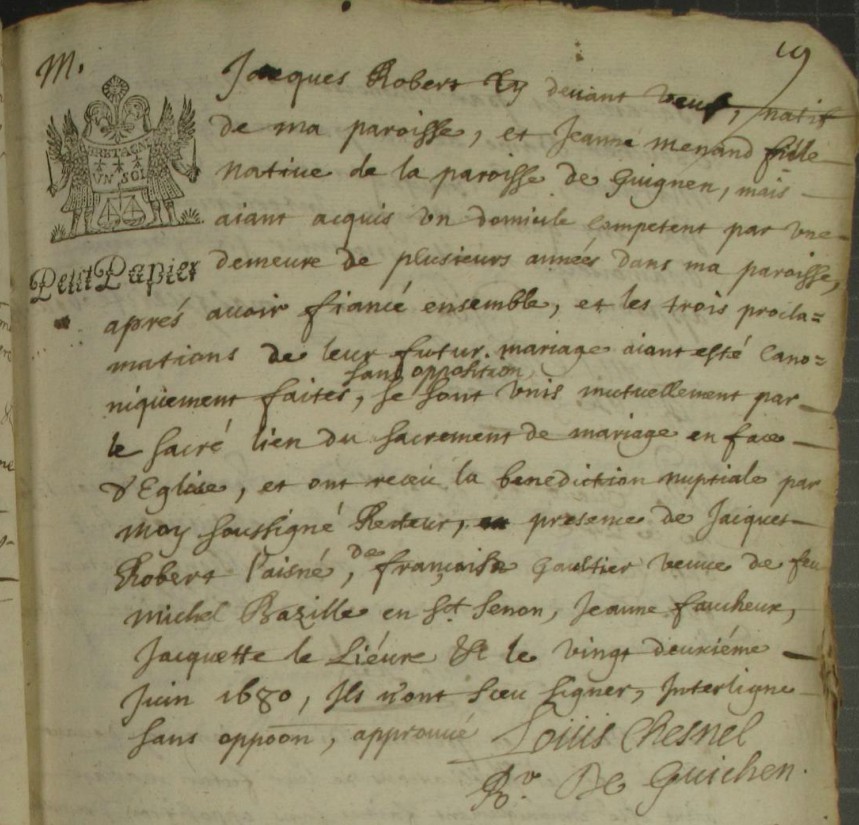 19
M.
BRETAGNE
UN SOL
Petit Papier
Jacques Robert cy devant veuf, natif
de ma paroisse, et Jeanne menand fille
native de la paroisse de Guignen, mais
aiant acquis un domicile competent par une
demeure de plusieurs années dans ma paroisse,
aprés avoir fiancé ensemble, et les trois procla=
mations de leur futur mariage aiant esté cano=
sans opposition
niquement faites, se sont unis mutuellement par
le sacré lien du sacrement de mariage en face
d'Eglise, et ont receu la benediction nuptiale par
moy soussigné Recteur, en presence de Jacques
Robert l'aisné, de françoise Gaultier veuve de feu
michel Bazille en St Senou, Jeanne faucheux,
Jacquette le Liévre &c le vingt deuxiéme
Juin 1680, Ils n'ont sceu signer, Interligne
sans oppoon, approuvé Loüis Chesnel
Rr. De Guichen.